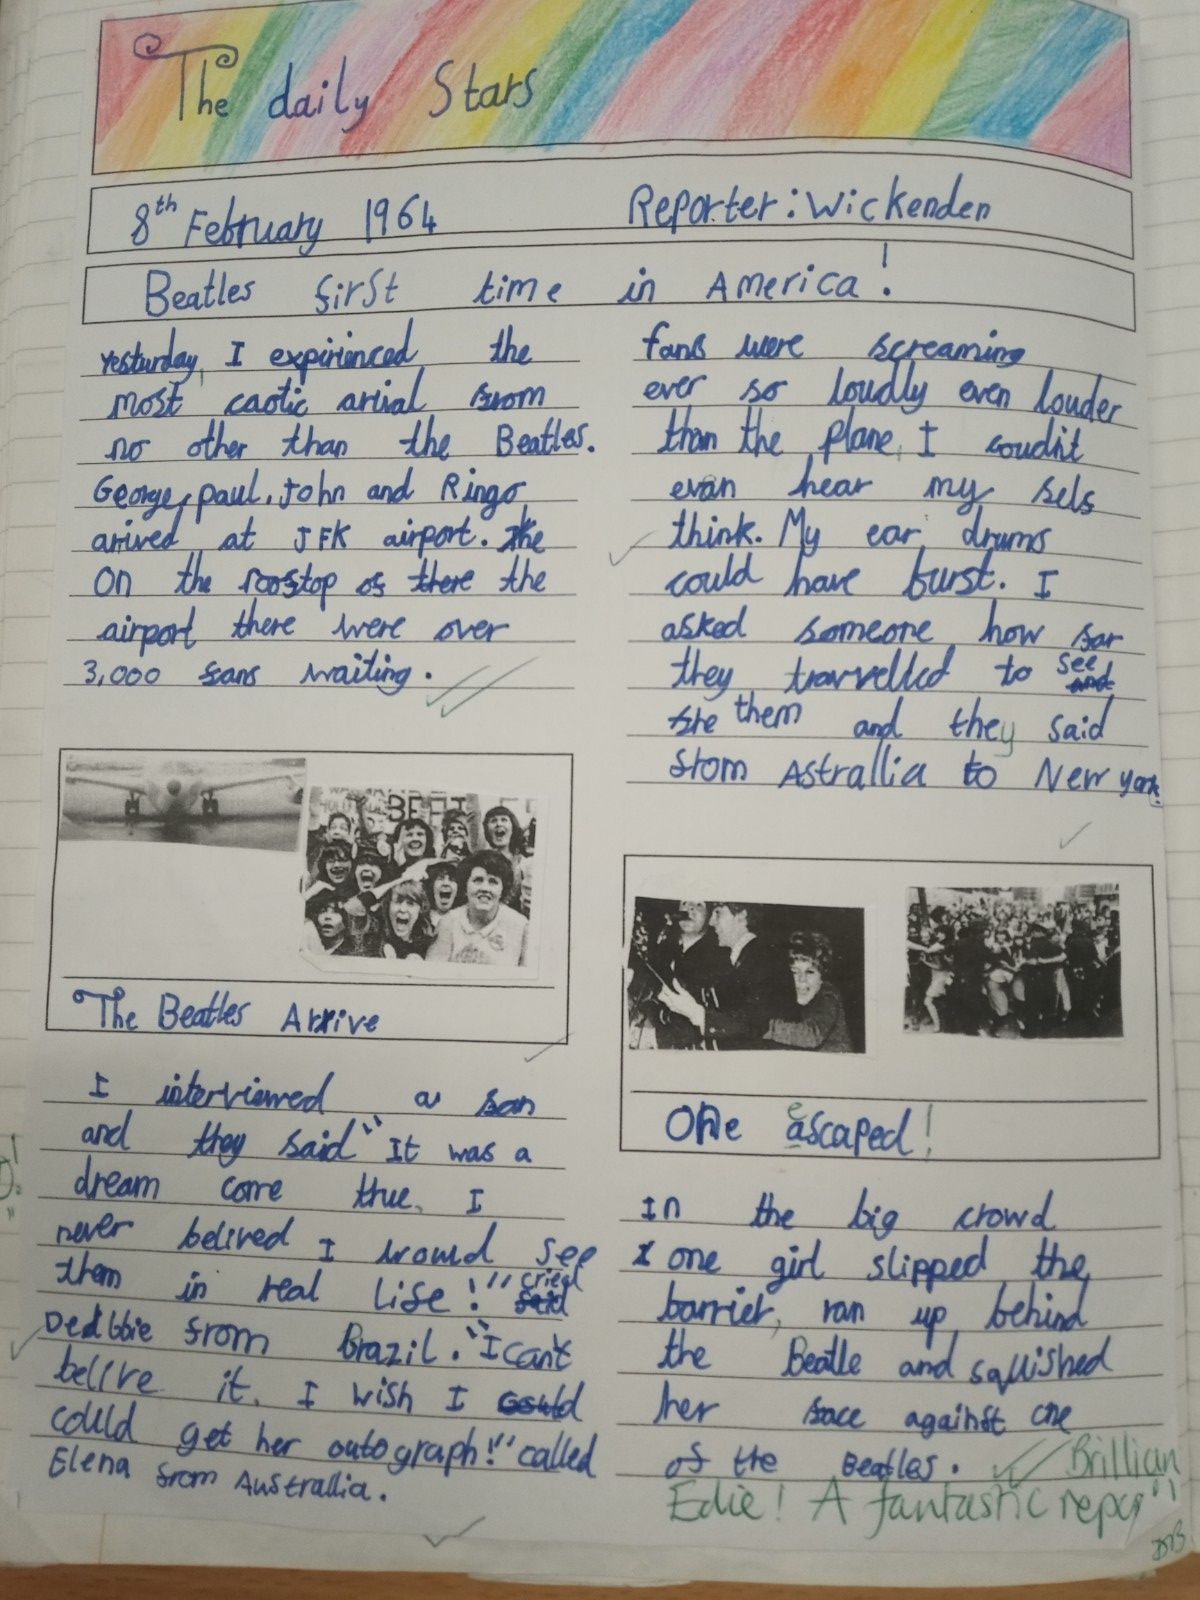 The daily Stars
8th February 1964 Reporter: Wickenden
Beatles first time in America!
Yesturday, I expirienced the
most caotic arival from
no other than the Beatles.
George, paul, John and Ringo
arived at JFK airport. The
On the rooftop of there the
airport there were over
3,000 fans waiting.
The Beatles Arrive
I interviewed a fan
and they said "It was a
dream come true. I
never belived I would see
them in real life!" said cried
Debbie from Brazil. "I can't
belive it. I wish I could
could get her autograph!" called
Elena from Australlia.
fans were screaming
ever so loudly even louder
than the plane, I coudn't
evan hear my self
think. My ear drums
could have burst. I
asked someone how far
they travelled to see and
see them and they said
from Astrallia to New york.
BEAT
One escaped!
In the big crowd
I one girl slipped the
barrier, ran up behind
the Beatle and squished
her face against one
of the Beatles.
Brillian
Edie! A fantastic repo